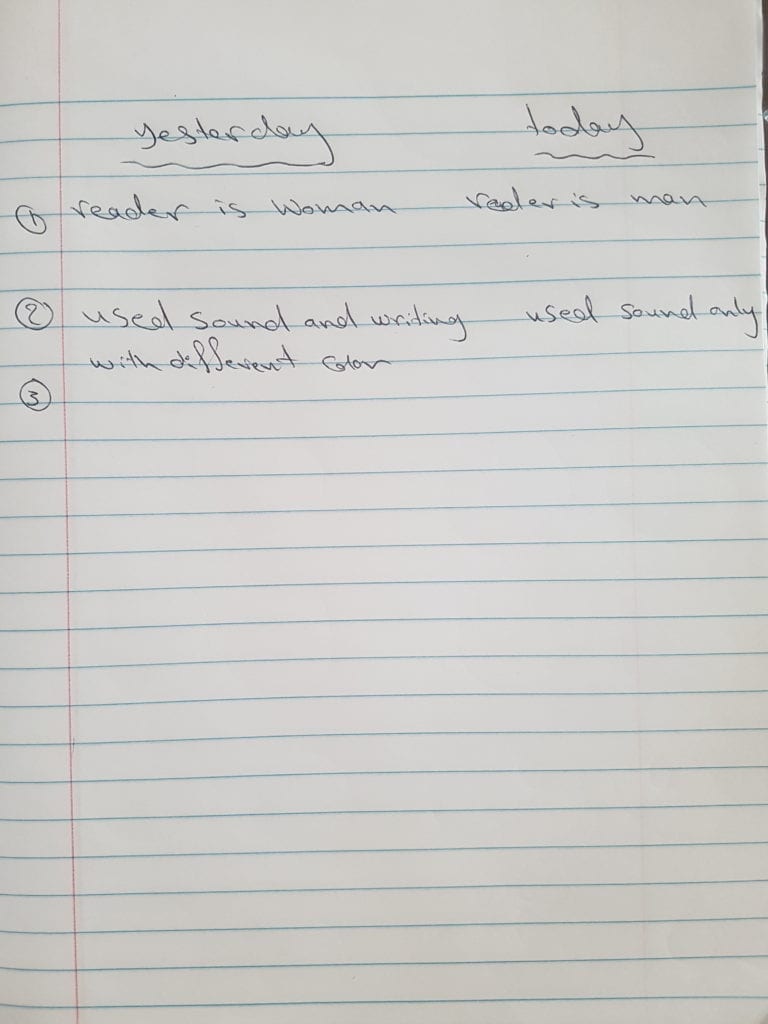 yesterday today
① reader is woman reader is man
② used sound and writing used sound only
with different color
③